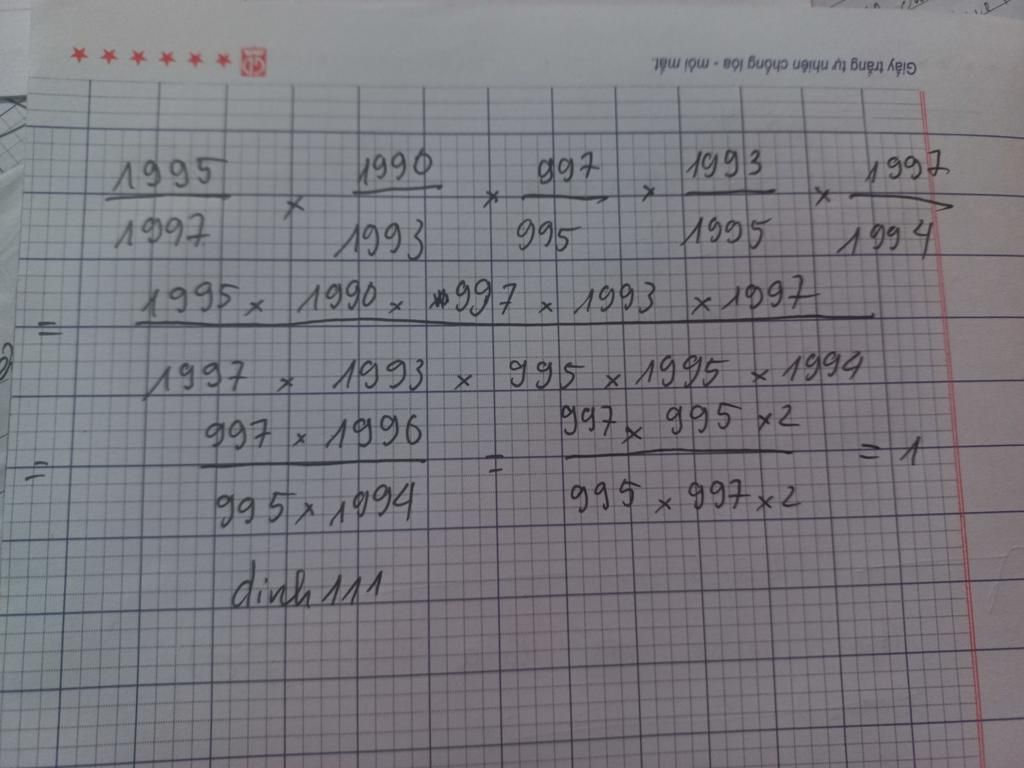 Giấy trắng tự nhiên chống lóa - mỏi mắt.
1995/1997 × 1990/1993 × 997/995 × 1993/1995 × 1997/1994
= (1995 × 1990 × 997 × 1993 × 1997)/(1997 × 1993 × 995 × 1995 × 1994)
= (997 × 1996)/(995 × 1994) = (997 × 995 × 2)/(995 × 997 × 2) = 1
dinh 111